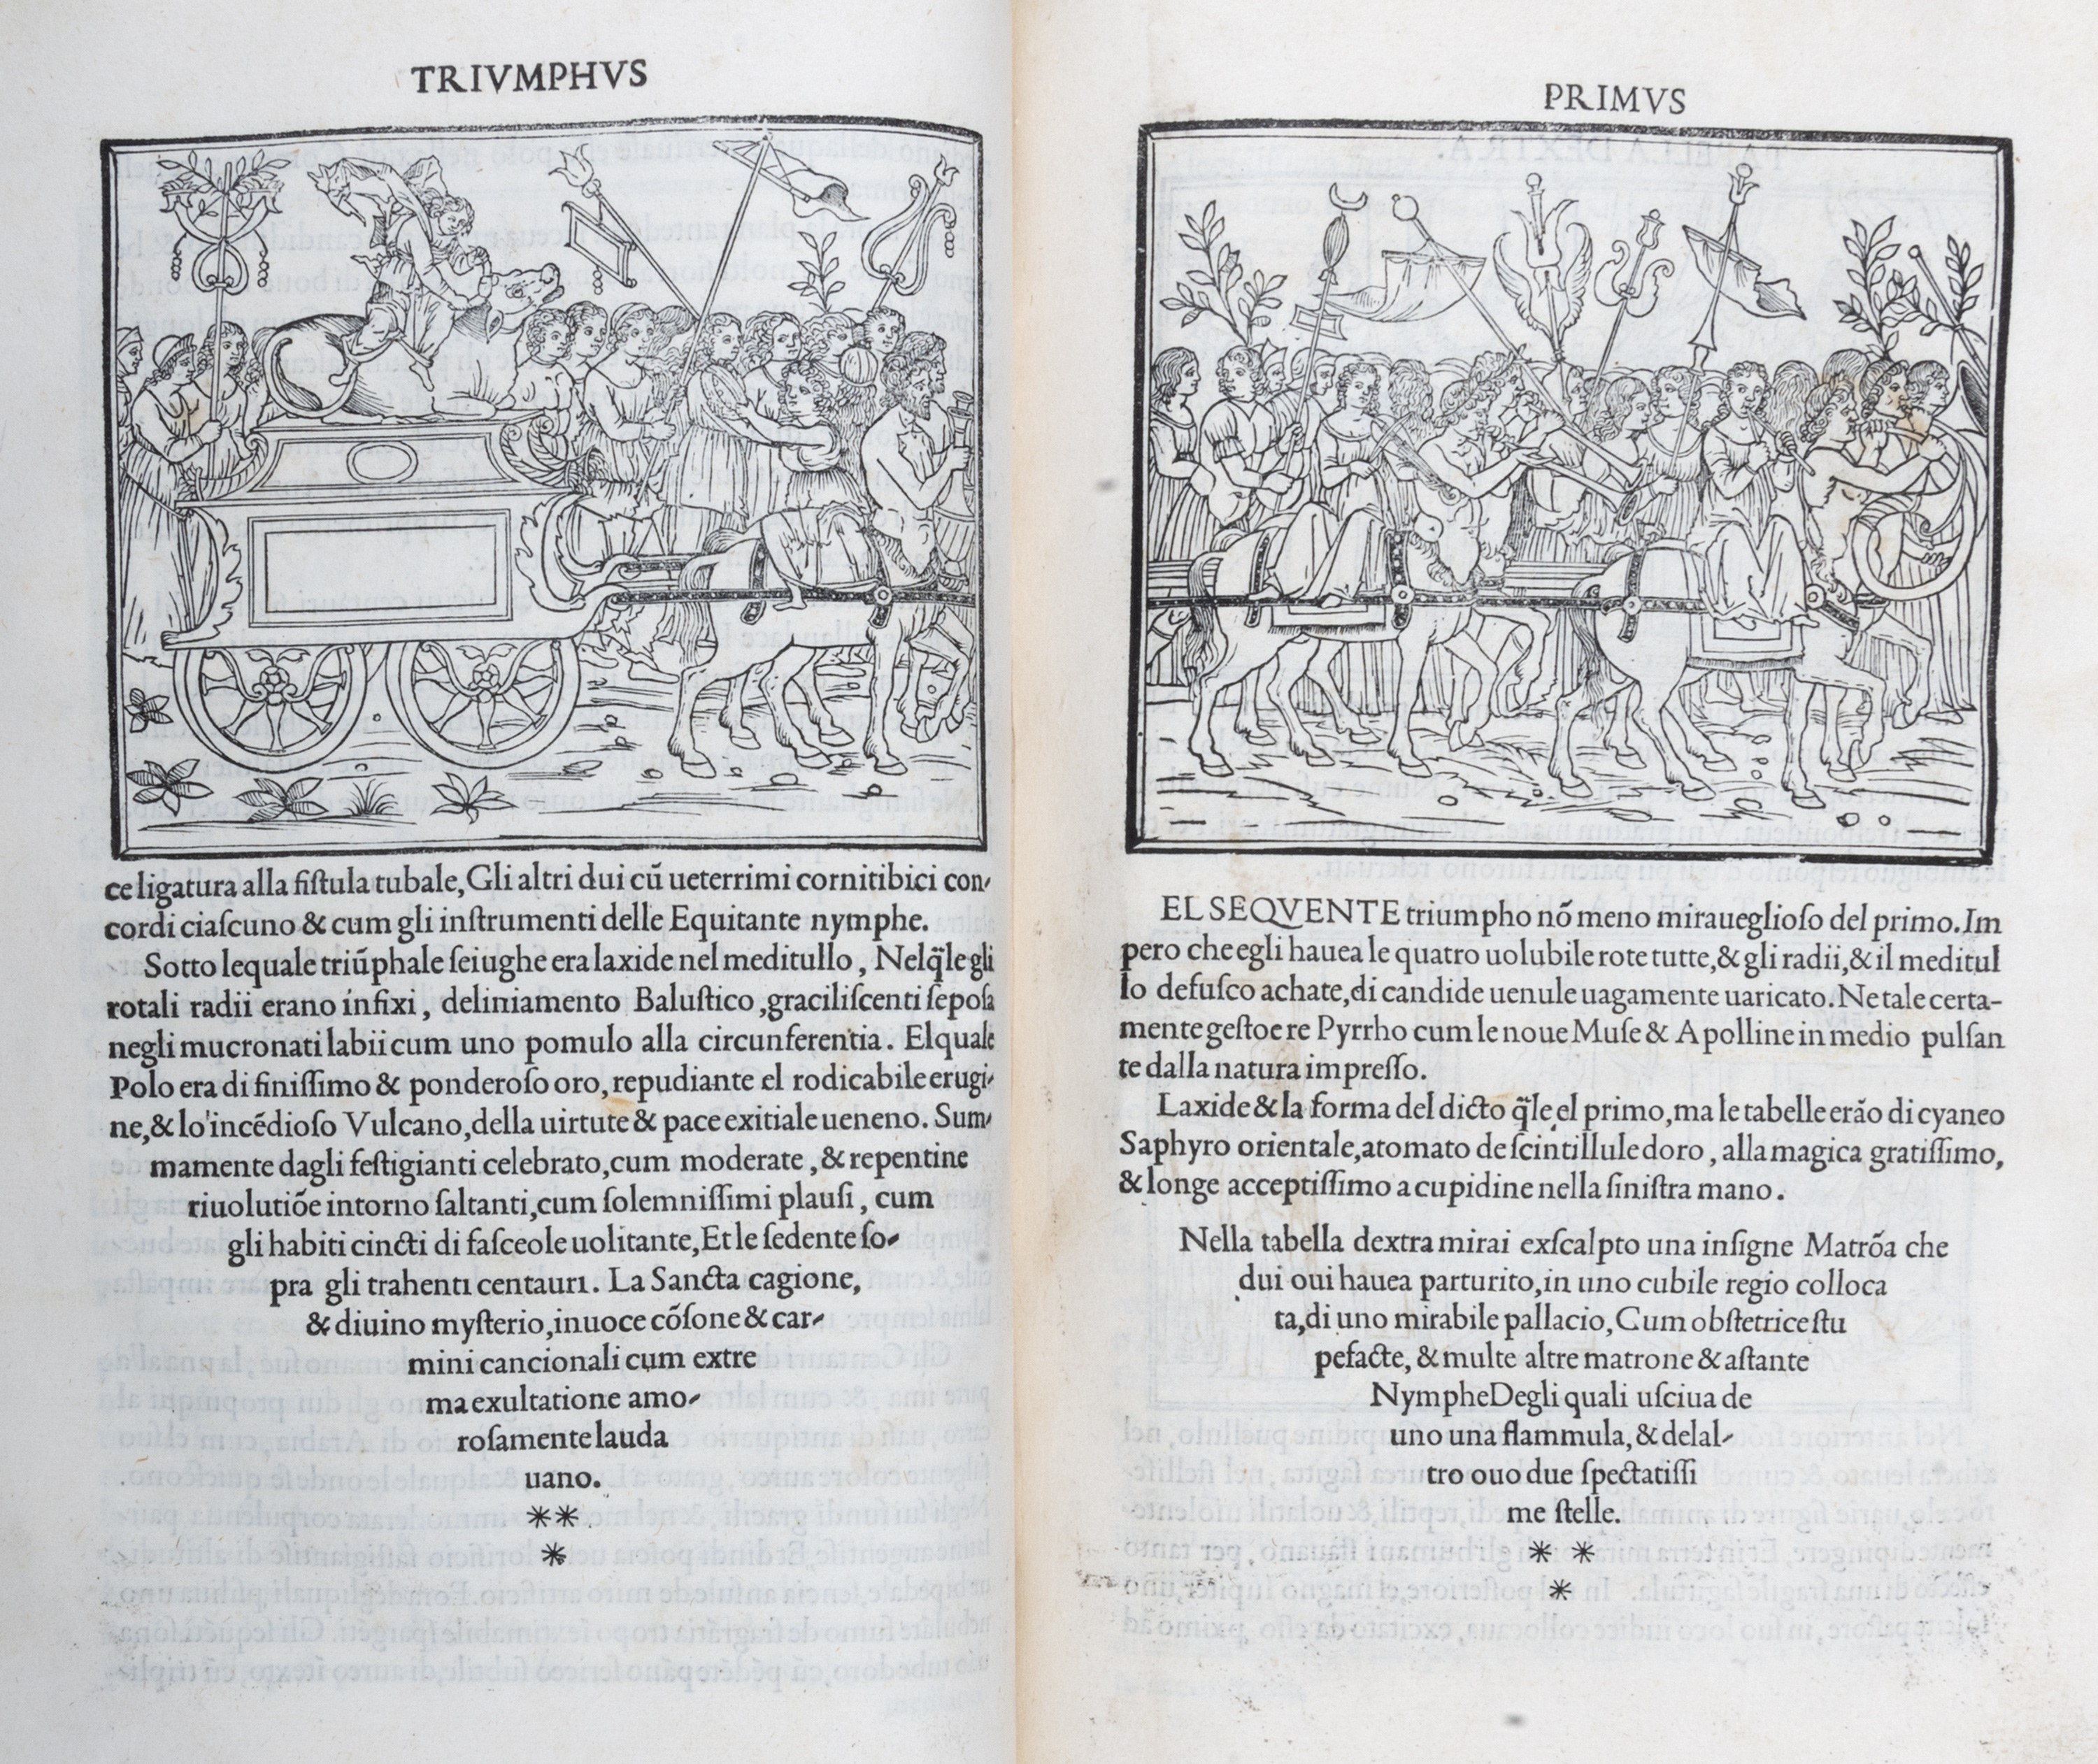 TRIVMPHVS
ce ligatura alla fiſtula tubale, Gli altri dui cū ueterrimi cornitibici con-
cordi ciaſcuno & cum gli inſtrumenti delle Equitante nymphe.
Sotto lequale triūphale ſeiughe era laxide nel meditullo, Nelq̃le gli
rotali radii erano infixi, deliniamento Baluſtico, graciliſcenti ſepoſa
negli mucronati labii cum uno pomulo alla circunferentia. Elquale
Polo era di finiſſimo & ponderoſo oro, repudiante el rodicabile erugi-
ne, & lo'incēdioſo Vulcano, della uirtute & pace exitiale ueneno. Sum-
mamente dagli feſtigianti celebrato, cum moderate, & repentine
riuolutiōe intorno ſaltanti, cum ſolemniſſimi plauſi, cum
gli habiti cincti di faſceole uolitante, Et le ſedente ſo-
pra gli trahenti centauri. La Sancta cagione,
& diuino myſterio, inuoce cōſone & car-
mini cancionali cum extre
ma exultatione amo-
roſamente lauda
uano.
**
*
PRIMVS
EL SEQVENTE triumpho nō meno miraueglioſo del primo. Im
pero che egli hauea le quatro uolubile rote tutte, & gli radii, & il meditul
lo defuſco achate, di candide uenule uagamente uaricato. Ne tale certa-
mente geſtoe re Pyrrho cum le noue Muſe & Apolline in medio pulſan
te dalla natura impreſſo.
Laxide & la forma del dicto q̃le el primo, ma le tabelle erāo di cyaneo
Saphyro orientale, atomato de ſcintillule doro, alla magica gratiſſimo,
& longe acceptiſſimo a cupidine nella ſiniſtra mano.
Nella tabella dextra mirai exſcalpto una inſigne Matrōa che
dui oui hauea parturito, in uno cubile regio colloca
ta, di uno mirabile pallacio, Cum obſtetrice ſtu
pefacte, & multe altre matrone & aſtante
Nymphe Degli quali uſciua de
uno una flammula, & delal-
tro ouo due ſpectatiſſi
me ſtelle.
* *
*